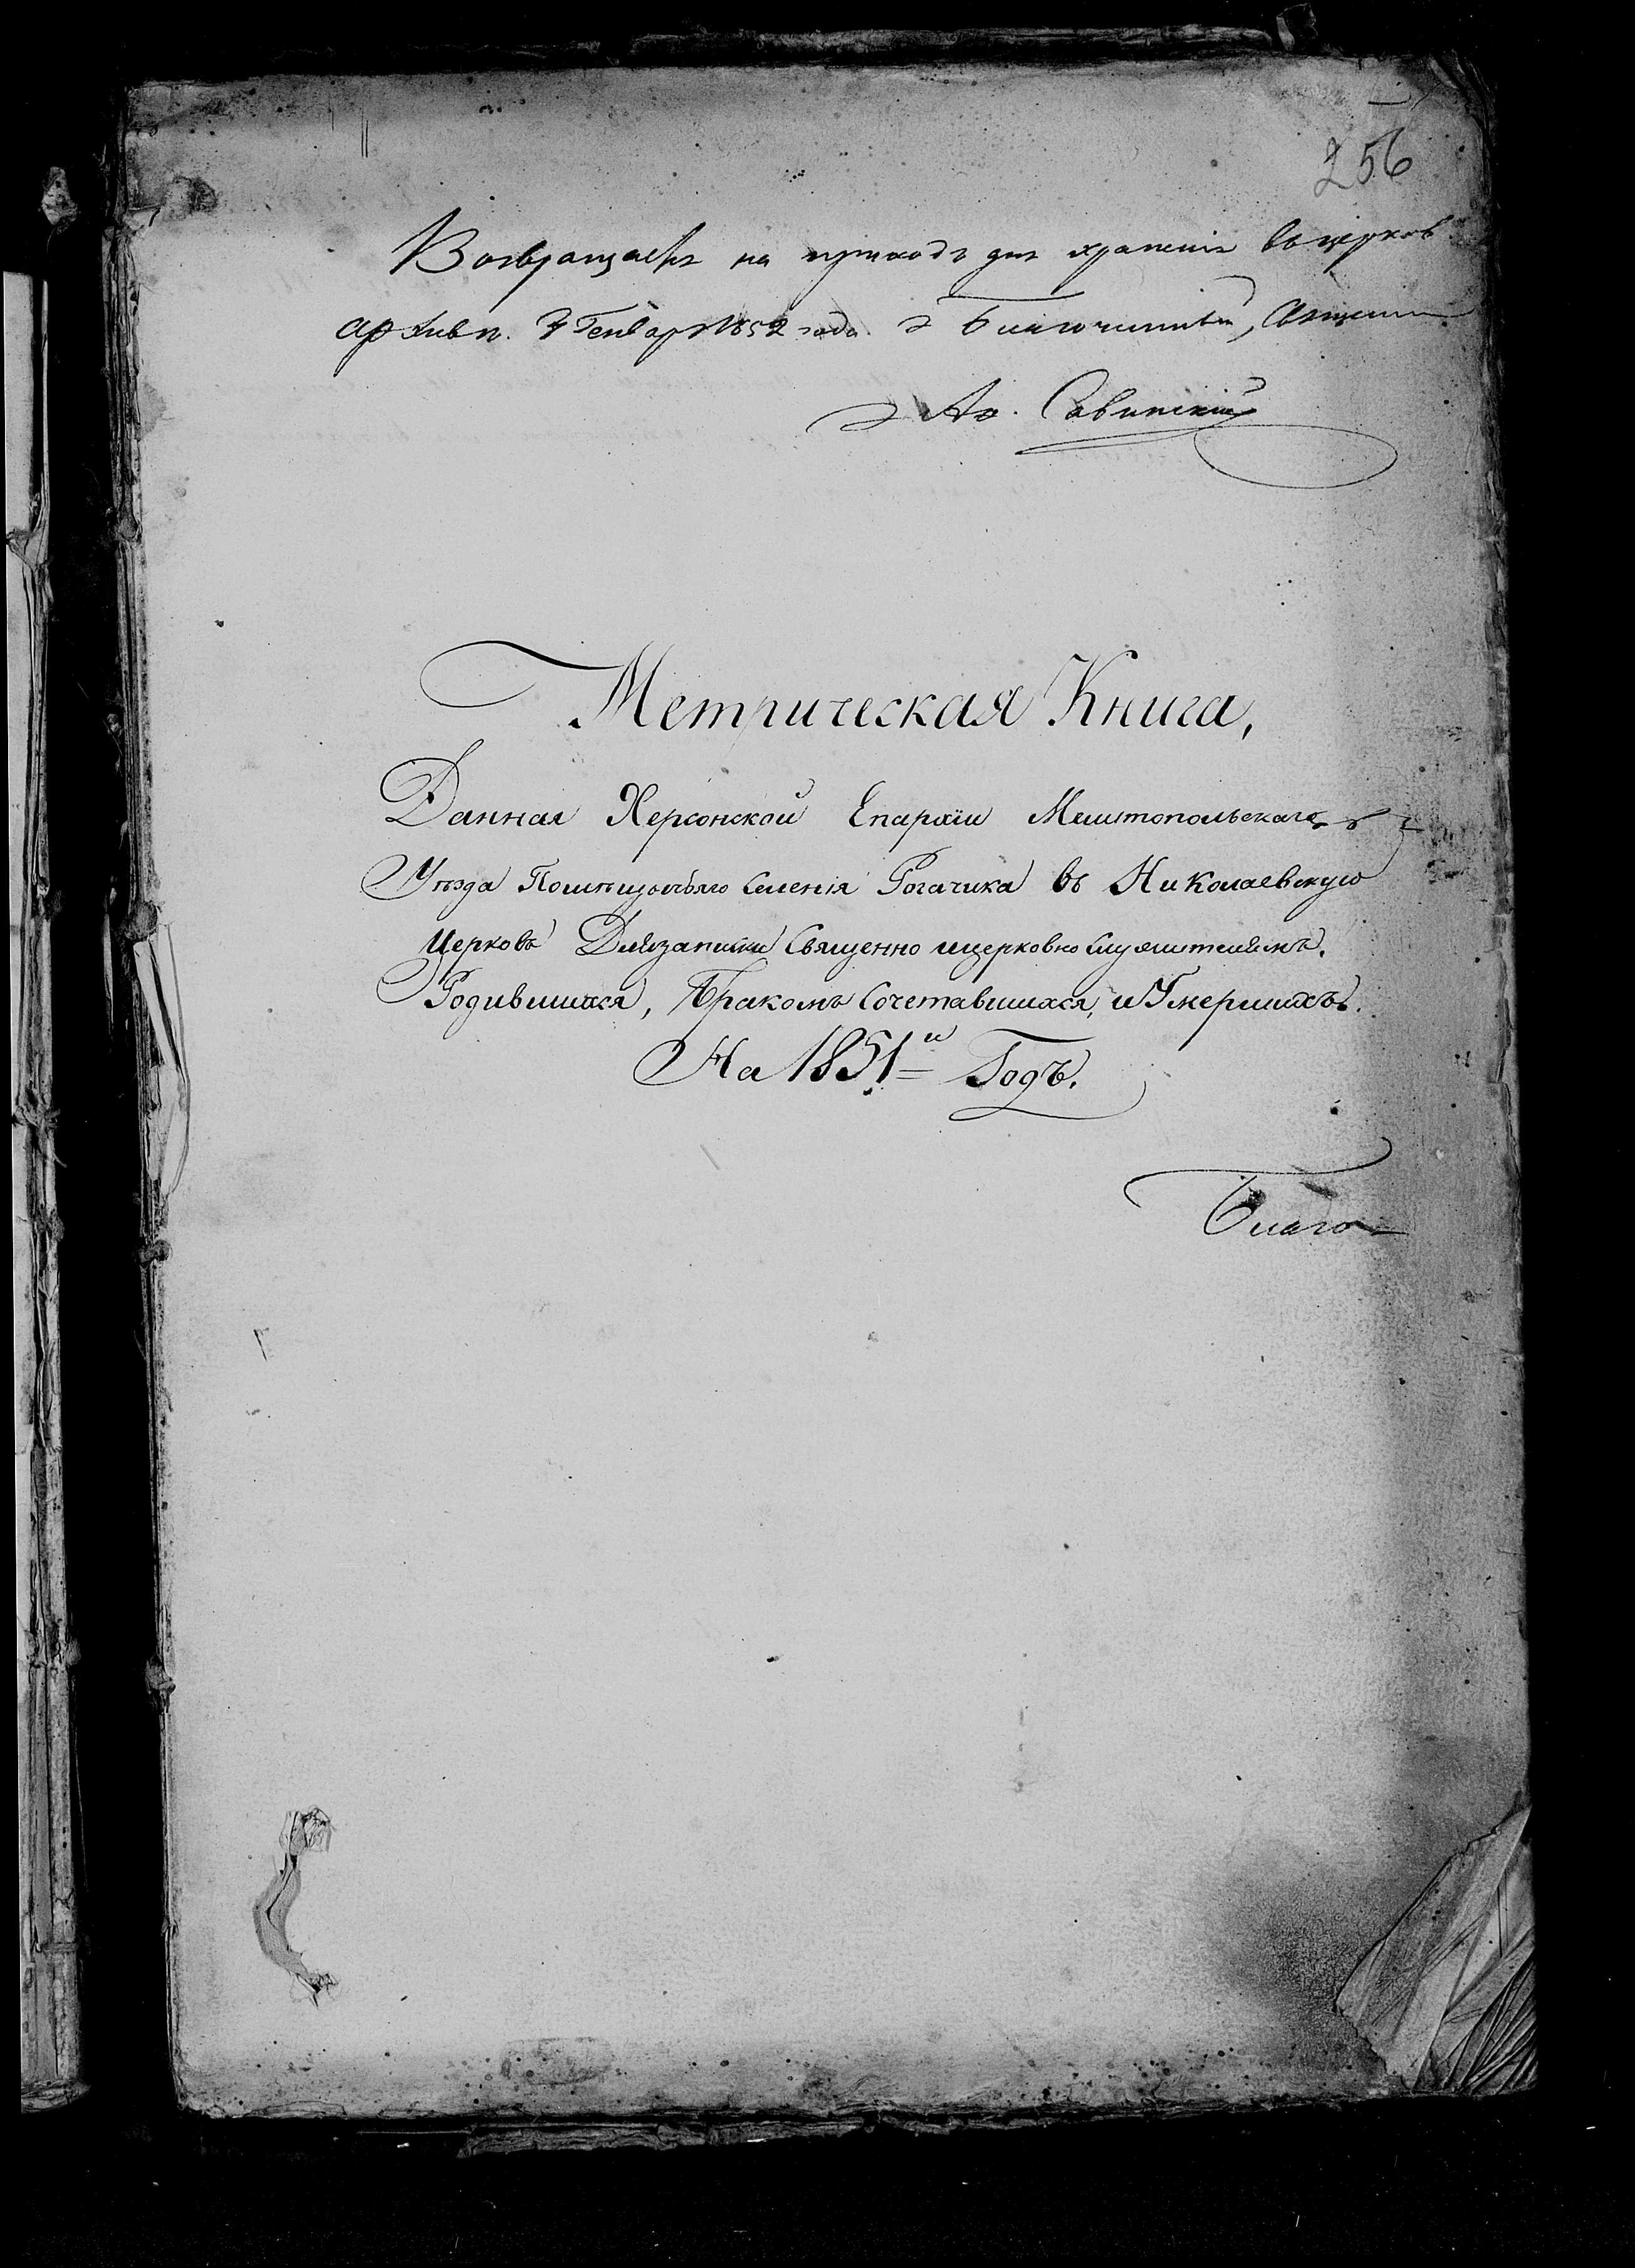 256
Возвращается на приходъ для храненія въ церков
архивѣ. 7 Генваря 1852 года. Благочинный, Священ
Ао. Савинскій
Метрическая Книга,
Данная Херсонской Епархіи Мелитопольскаго
Уѣзда Помѣщичьяго Селенія Рогачика въ Николаевскую
Церковь Для записки Священно и церковно служителямъ.
Родившихся, Бракомъ Сочетавшихся, и Умершихъ.
На 1851й Годъ.
Благо